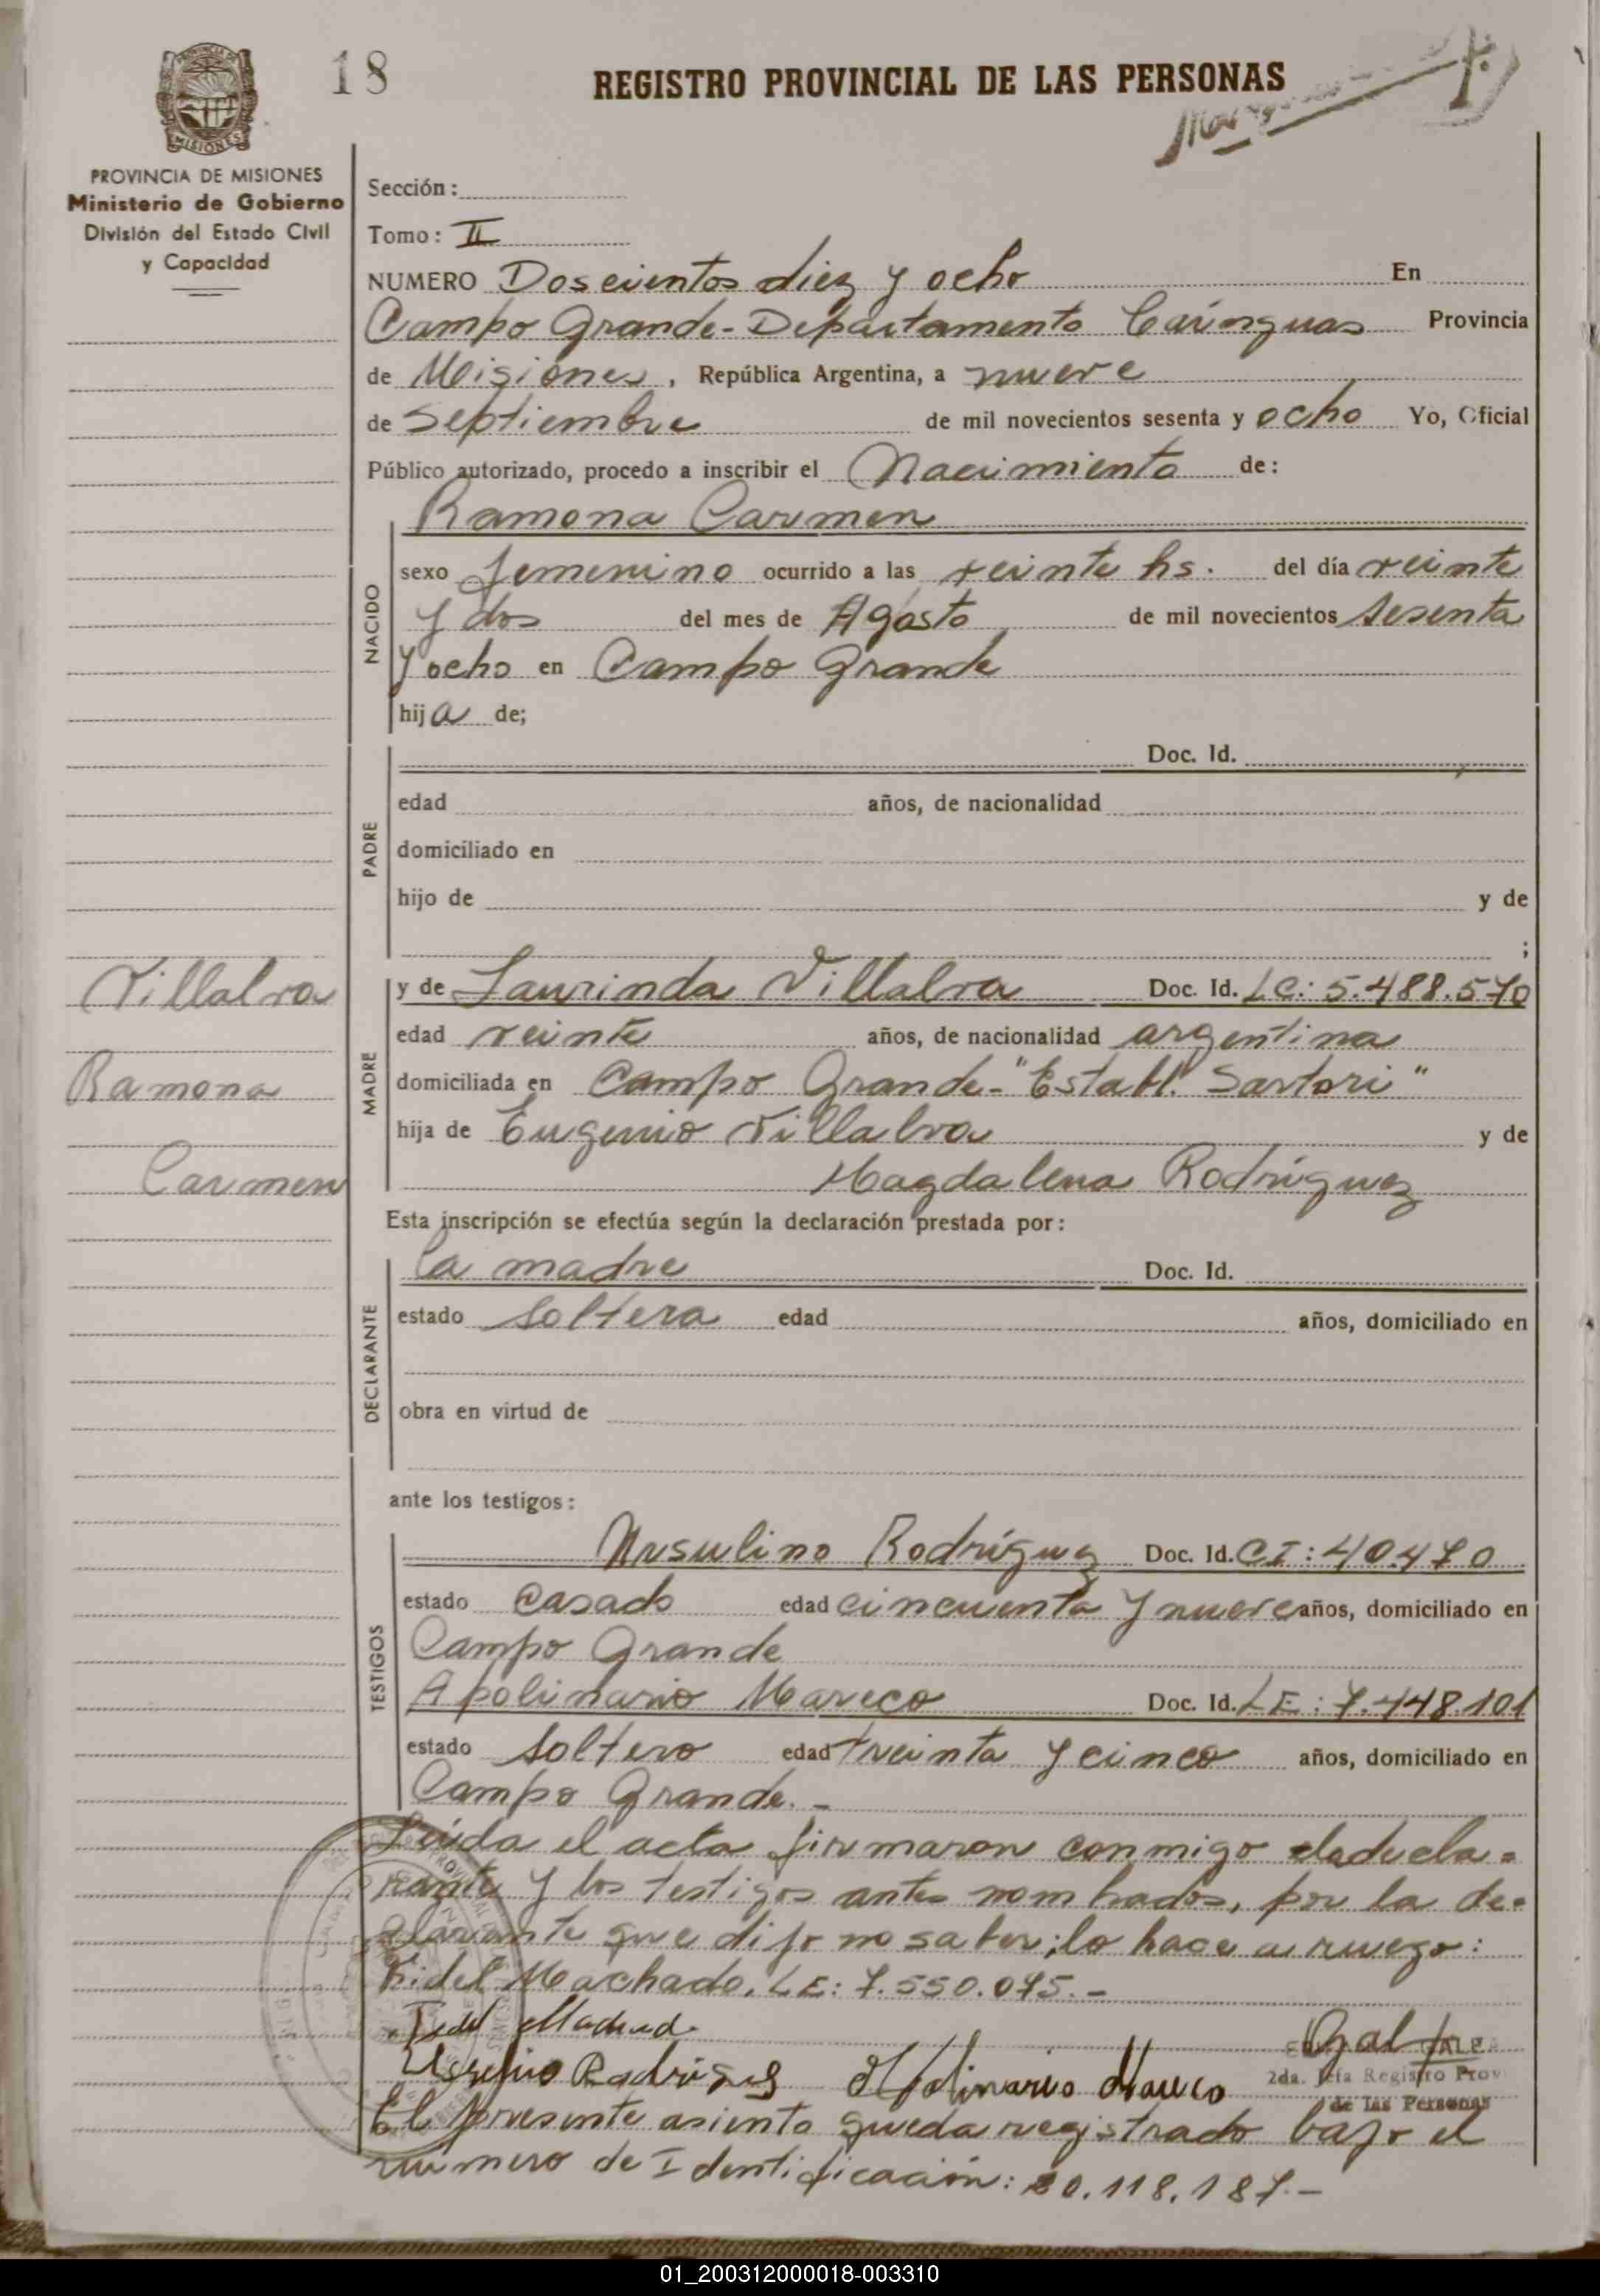 18
REGISTRO PROVINCIAL DE LAS PERSONAS
PROVINCIA DE MISIONES
Ministerio de Gobierno
División del Estado Civil
y Capacidad
Sección:
Tomo: II
NUMERO Doscientos diez y ocho En
Campo Grande - Departamento Cainguas Provincia
de Misiones, República Argentina, a nueve
de Septiembre de mil novecientos sesenta y ocho Yo, Oficial
Público autorizado, procedo a inscribir el Nacimiento de:
Ramona Carmen
NACIDO
sexo femenino ocurrido a las veinte hs. del día veinte
y dos del mes de Agosto de mil novecientos sesenta
y ocho en Campo Grande
hija de;
PADRE
Doc. Id.
edad años, de nacionalidad
domiciliado en
hijo de y de
;
Villalva
Ramona
Carmen
MADRE
y de Laurinda Villalva Doc. Id. LC: 5.488.570
edad veinte años, de nacionalidad argentina
domiciliada en Campo Grande - "Establ. Sartori"
hija de Eugenio Villalva y de
Magdalena Rodríguez
Esta inscripción se efectúa según la declaración prestada por:
DECLARANTE
la madre Doc. Id.
estado soltera edad años, domiciliado en
obra en virtud de
ante los testigos:
TESTIGOS
Ursulino Rodríguez Doc. Id. CI: 40.470
estado casado edad cincuenta y nueve años, domiciliado en
Campo Grande
Apolinario Mareco Doc. Id. LE: 7.448.101
estado soltero edad treinta y cinco años, domiciliado en
Campo Grande. -
Leída el acta firmaron conmigo
y los testigos antes nombrados, por la de-
clarante que dijo no saber; lo hace a ruego:
Fidel Machado, LE: 7.550.075. -
Rodríguez
2da. Jefa Registro Prov
de las Personas
El presente asiento queda registrado bajo el
numero de Identificación: 20.118.187. -
01_200312000018-003310